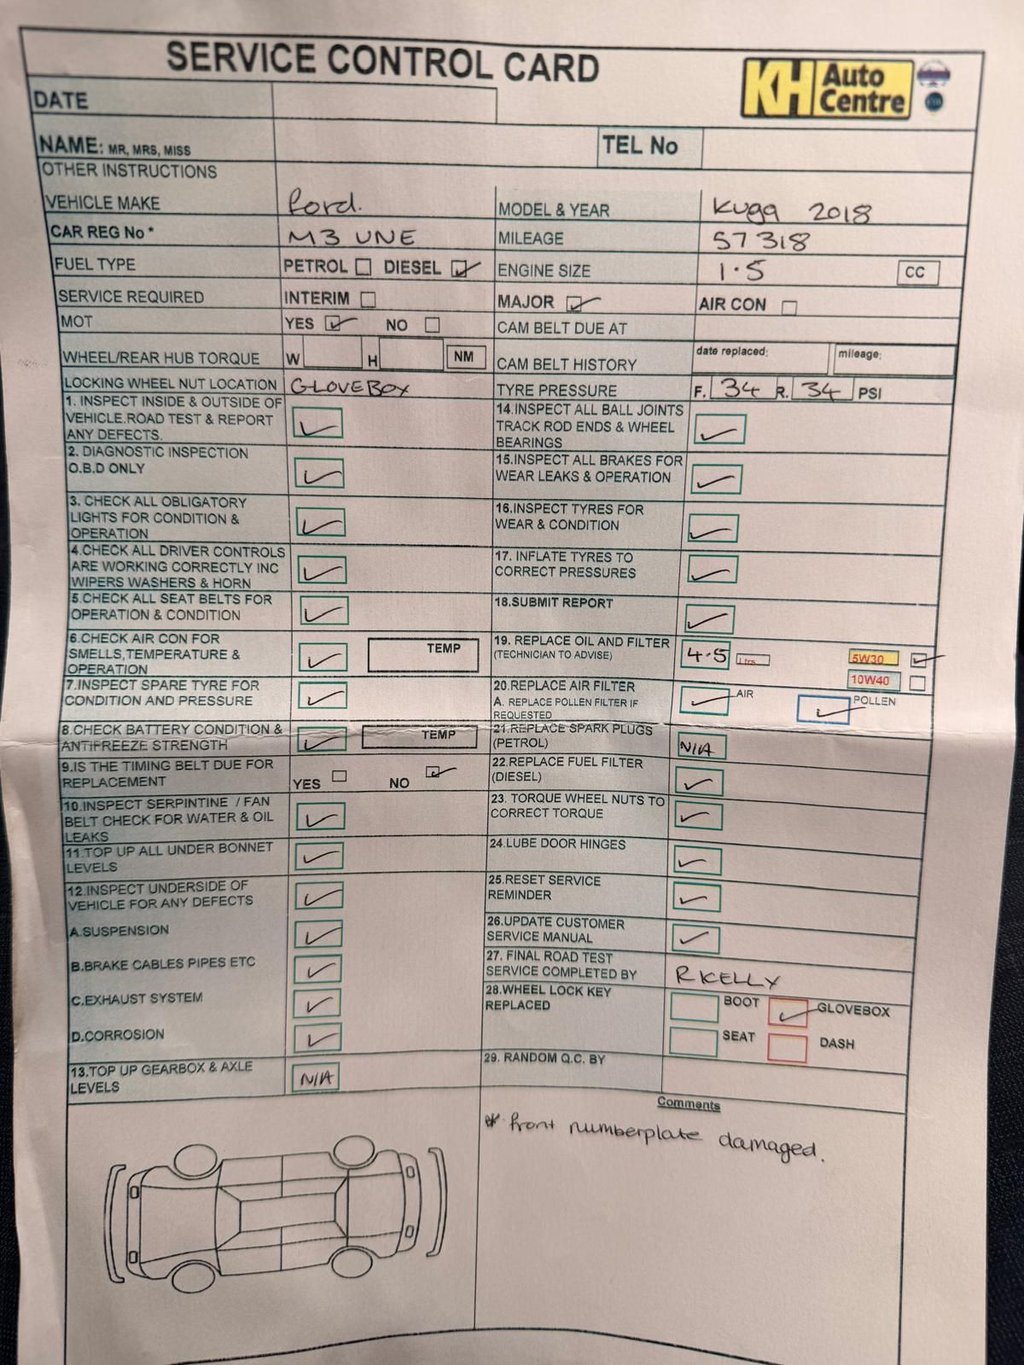 SERVICE CONTROL CARD
KH Auto Centre
DATE
NAME: MR, MRS, MISS TEL No
OTHER INSTRUCTIONS
VEHICLE MAKE Ford. MODEL & YEAR Kuga 2018
CAR REG No * M3 UNE MILEAGE 57318
FUEL TYPE PETROL DIESEL ENGINE SIZE 1.5 CC
SERVICE REQUIRED INTERIM MAJOR AIR CON
MOT YES NO CAM BELT DUE AT
WHEEL/REAR HUB TORQUE W H NM CAM BELT HISTORY date replaced; mileage;
LOCKING WHEEL NUT LOCATION GLOVEBOX TYRE PRESSURE F. 34 R. 34 PSI
1. INSPECT INSIDE & OUTSIDE OF
VEHICLE.ROAD TEST & REPORT
ANY DEFECTS.
2. DIAGNOSTIC INSPECTION
O.B.D ONLY
3. CHECK ALL OBLIGATORY
LIGHTS FOR CONDITION &
OPERATION
4.CHECK ALL DRIVER CONTROLS
ARE WORKING CORRECTLY INC
WIPERS WASHERS & HORN
5.CHECK ALL SEAT BELTS FOR
OPERATION & CONDITION
6.CHECK AIR CON FOR
SMELLS,TEMPERATURE &
OPERATION
TEMP
7.INSPECT SPARE TYRE FOR
CONDITION AND PRESSURE
8.CHECK BATTERY CONDITION &
ANTIFREEZE STRENGTH
TEMP
9.IS THE TIMING BELT DUE FOR
REPLACEMENT YES NO
10.INSPECT SERPINTINE / FAN
BELT CHECK FOR WATER & OIL
LEAKS
11.TOP UP ALL UNDER BONNET
LEVELS
12.INSPECT UNDERSIDE OF
VEHICLE FOR ANY DEFECTS
A.SUSPENSION
B.BRAKE CABLES PIPES ETC
C.EXHAUST SYSTEM
D.CORROSION
13.TOP UP GEARBOX & AXLE
LEVELS N/A
14.INSPECT ALL BALL JOINTS
TRACK ROD ENDS & WHEEL
BEARINGS
15.INSPECT ALL BRAKES FOR
WEAR LEAKS & OPERATION
16.INSPECT TYRES FOR
WEAR & CONDITION
17. INFLATE TYRES TO
CORRECT PRESSURES
18.SUBMIT REPORT
19. REPLACE OIL AND FILTER
(TECHNICIAN TO ADVISE) 4.5 Ltrs 5W30
10W40
20.REPLACE AIR FILTER
A. REPLACE POLLEN FILTER IF
REQUESTED
AIR POLLEN
21.REPLACE SPARK PLUGS
(PETROL) N/A
22.REPLACE FUEL FILTER
(DIESEL)
23. TORQUE WHEEL NUTS TO
CORRECT TORQUE
24.LUBE DOOR HINGES
25.RESET SERVICE
REMINDER
26.UPDATE CUSTOMER
SERVICE MANUAL
27. FINAL ROAD TEST
SERVICE COMPLETED BY R KELLY
28.WHEEL LOCK KEY
REPLACED
BOOT GLOVEBOX
SEAT DASH
29. RANDOM Q.C. BY
Comments
* front numberplate damaged.